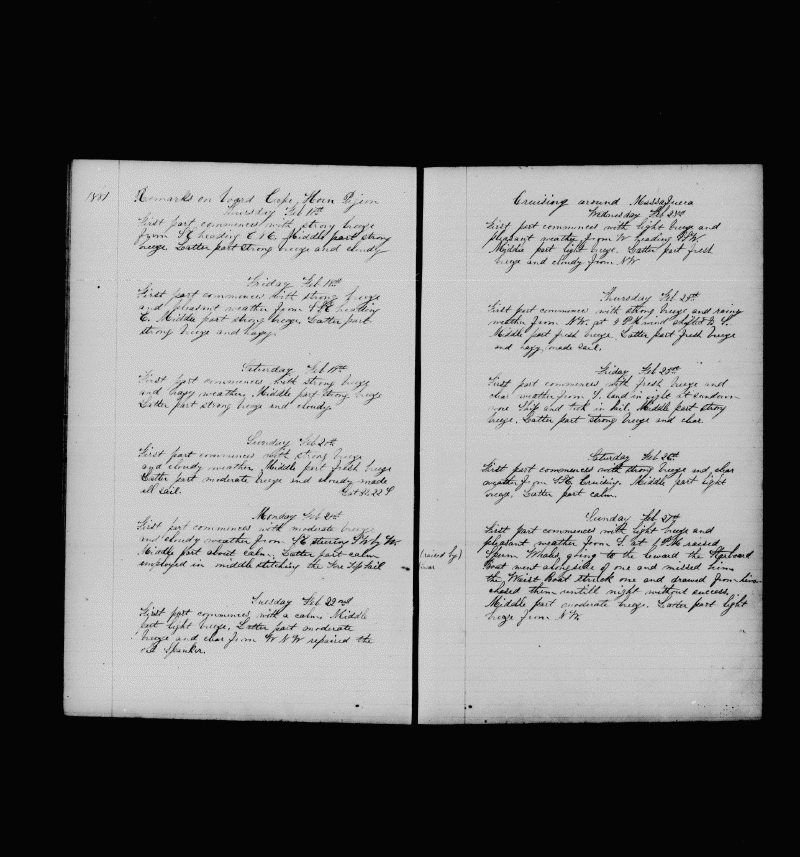 1881 Remarks on Board Cape Horn Pigion
Thursday Feb 17th
First part commences with strong breeze
from SE heading E.N.E. Middle part strong
breeze Latter part strong breeze and cloudy
Friday Feb 18th
First part commences with strong breeze
and pleasant weather from SSE heading
E. Middle part strong breeze. Latter part
strong breeze and hazy.
Saturday Feb 19th
First part commences with strong breeze
and hazy weather. Middle part strong breeze
Latter part strong breeze and cloudy.
Sunday Feb 20th
First part commences with strong breeze
and cloudy weather Middle part fresh breeze
Latter part moderate breeze and cloudy made
all sail.
Lat 34.22 S
Monday Feb 21st
First part commences with moderate breeze
and cloudy weather from SE steering SW by W.
Middle part about calm. Latter part calm
employed in middle stitching the Fore Topsail
Tuesday Feb 22nd
First part commences with a calm. Middle
part light breeze. Latter part moderate
breeze and clear from W N W repaired the
old Spanker.
Cruising around Massafuera
Wednesday Feb 23rd
First part commences with light breeze and
pleasant weather from W heading SSW.
Middle part light breeze. Latter part fresh
breeze and cloudy from NW
Thursday Feb 24th
First part commences with strong breeze and rainy
weather from N.W. at 4 P.M. wind shifted to S.
Middle part fresh breeze. Latter part fresh breeze
and hazy, made sail.
Friday Feb 25th
First part commences with fresh breeze and
clear weather from S. land in sight At sundown
wore Ship and took in sail. Middle part strong
breeze. Latter part strong breeze and clear.
Saturday Feb 26th
First part commences with strong breeze and clear
weather from Cruising. Middle part light
breeze. Latter part calm.
Sunday Feb 27th
First part commences with light breeze and
pleasant weather from S. at P.M. raised
(raised by)
Sperm Whales going to the leward the Starboard
Boat went alongside of one and missed him
the Waist Boat struck one and drawed from him
chased them untill night without success.
Middle part moderate breeze. Latter part light
breeze from N W.